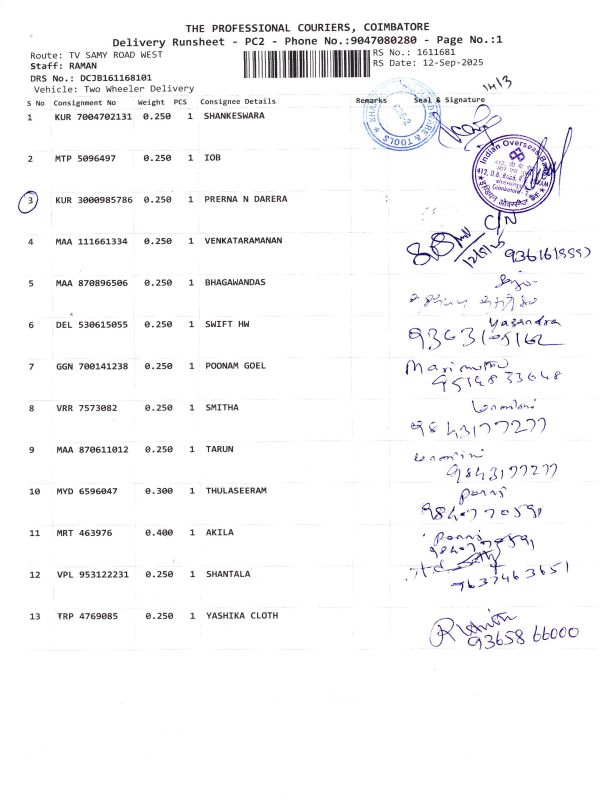 THE PROFESSIONAL COURIERS, COIMBATORE
Delivery Runsheet - PC2 - Phone No.:9047080280 - Page No.:1
Route: TV SAMY ROAD WEST RS No.: 1611681
Staff: RAMAN RS Date: 12-Sep-2025
DRS No.: DCJB161168101
Vehicle: Two Wheeler Delivery
14/3
S No Consignment No Weight PCS Consignee Details Remarks Seal & Signature
1 KUR 7004702131 0.250 1 SHANKESWARA
2 MTP 5096497 0.250 1 IOB
Indian Overseas Bank
3 KUR 3000985786 0.250 1 PRERNA N DARERA
C/N
4 MAA 111661334 0.250 1 VENKATARAMANAN
5 MAA 870896506 0.250 1 BHAGAWANDAS
6 DEL 530615055 0.250 1 SWIFT HW
9363105162
7 GGN 700141238 0.250 1 POONAM GOEL
Marimuthu
9514833648
8 VRR 7573082 0.250 1 SMITHA
9843177277
9 MAA 870611012 0.250 1 TARUN
9843177277
10 MYD 6596047 0.300 1 THULASEERAM
Ponni
9840770591
11 MRT 463976 0.400 1 AKILA
Ponni
9840770591
12 VPL 953122231 0.250 1 SHANTALA
7637463651
13 TRP 4769085 0.250 1 YASHIKA CLOTH
9365866000